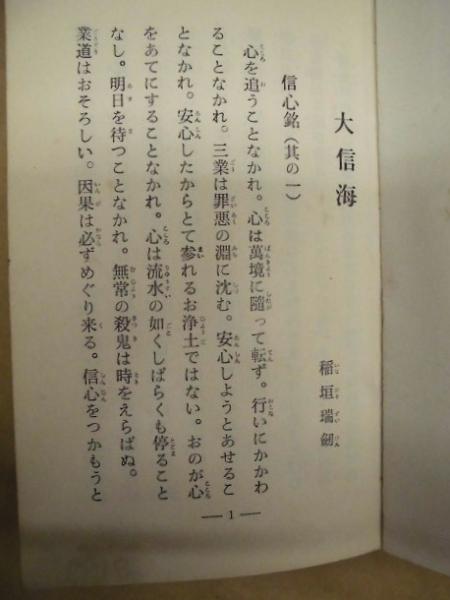 大信海
稲垣瑞劔
信心銘（其の一）
心を追うことなかれ。心は萬境に隨って転ず。行いにかかわ
ることなかれ。三業は罪悪の淵に沈む。安心しようとあせるこ
となかれ。安心したからとて参れるお浄土ではない。おのが心
をあてにすることなかれ。心は流水の如くしばらくも停ること
なし。明日を待つことなかれ。無常の殺鬼は時をえらばぬ。
業道はおそろしい。因果は必ずめぐり来る。信心をつかもうと
— 1 —